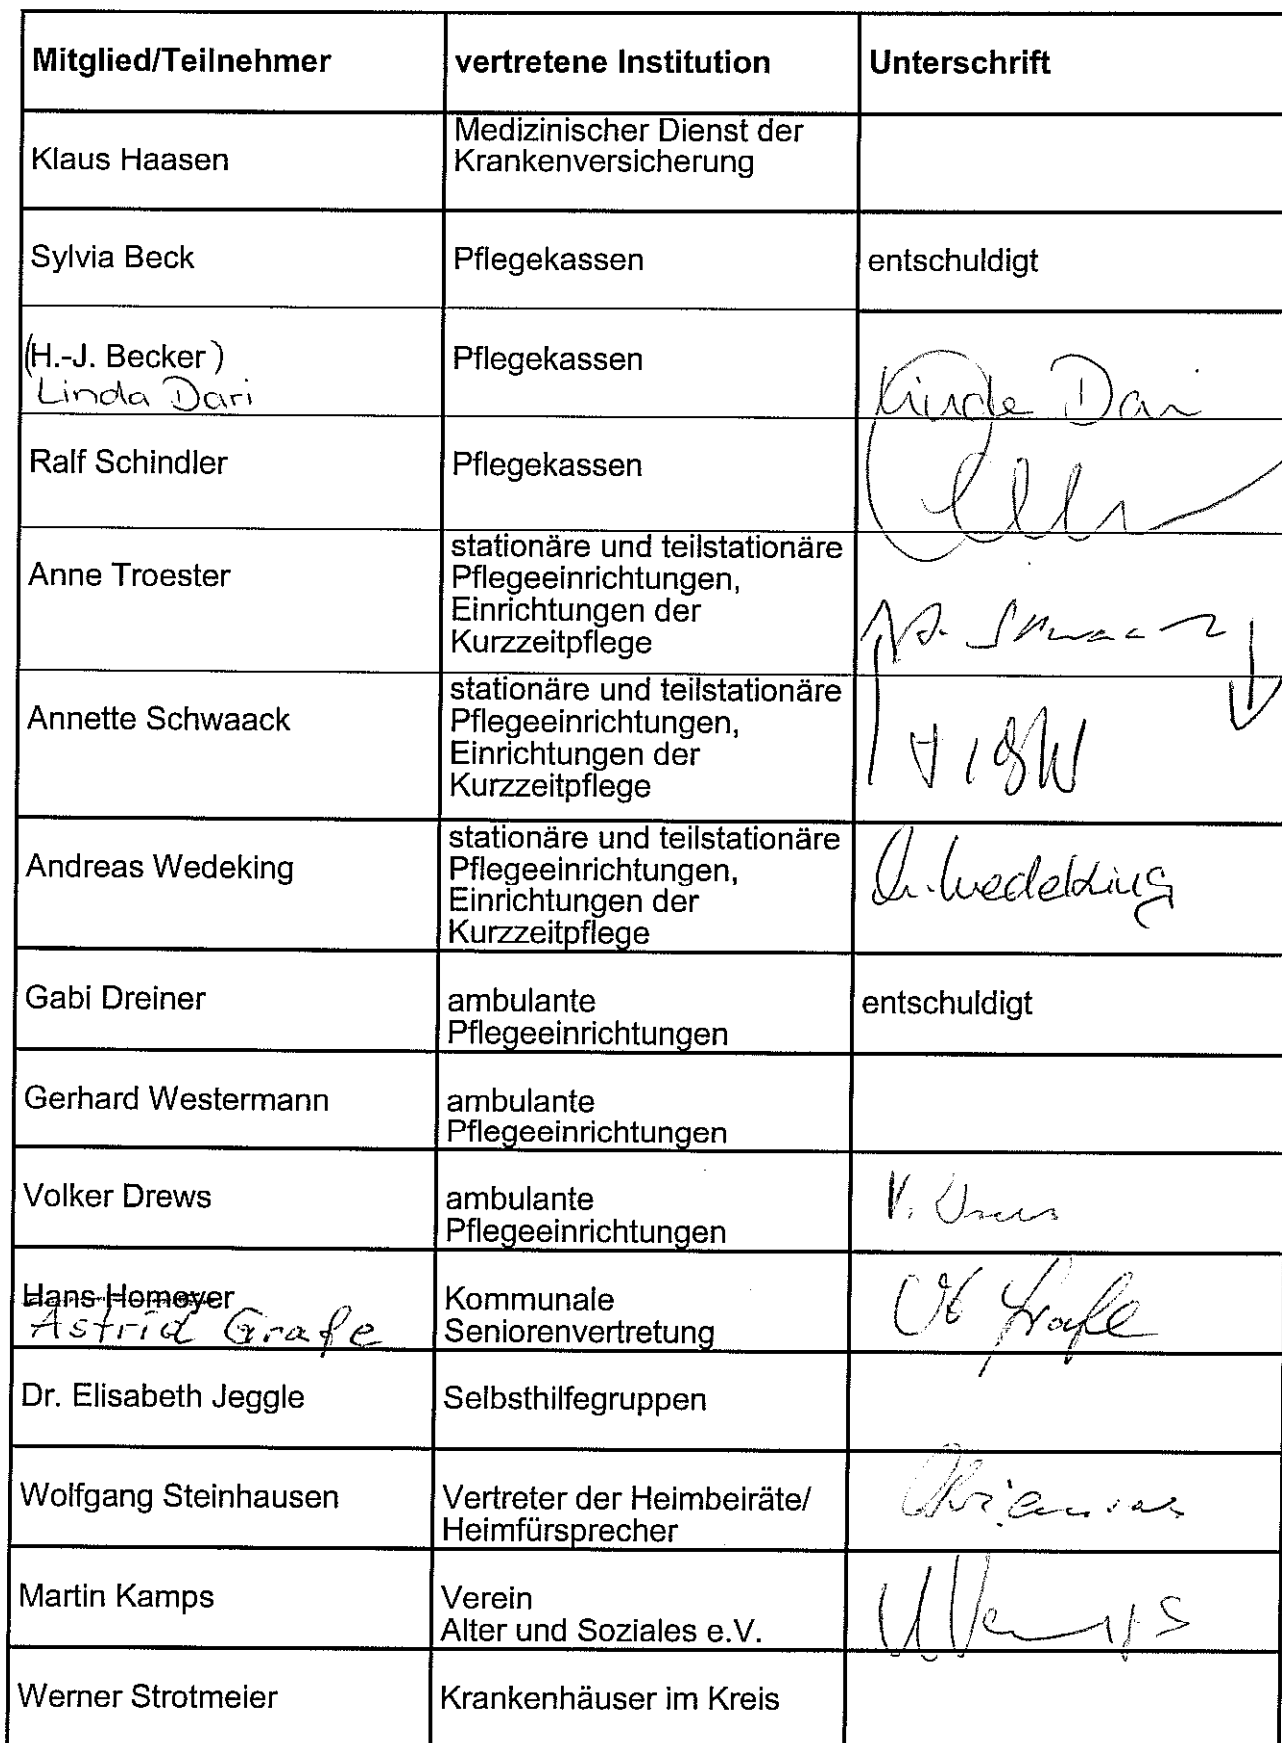 Mitglied/Teilnehmer vertretene Institution Unterschrift
Klaus Haasen Medizinischer Dienst der
Krankenversicherung
Sylvia Beck Pflegekassen entschuldigt
(H.-J. Becker) Pflegekassen
Linda Dari Linda Dari
Ralf Schindler Pflegekassen
Anne Troester stationäre und teilstationäre
Pflegeeinrichtungen,
Einrichtungen der
Kurzzeitpflege
Annette Schwaack stationäre und teilstationäre
Pflegeeinrichtungen,
Einrichtungen der
Kurzzeitpflege
Andreas Wedeking stationäre und teilstationäre
Pflegeeinrichtungen,
Einrichtungen der
Kurzzeitpflege
A. Wedeking
Gabi Dreiner ambulante entschuldigt
Pflegeeinrichtungen
Gerhard Westermann ambulante
Pflegeeinrichtungen
Volker Drews ambulante V. Drews
Pflegeeinrichtungen
Hans Homeyer Kommunale
Astrid Grafe Seniorenvertretung Grafe
Dr. Elisabeth Jeggle Selbsthilfegruppen
Wolfgang Steinhausen Vertreter der Heimbeiräte/
Heimfürsprecher
Martin Kamps Verein
Alter und Soziales e.V. M. Kamps
Werner Strotmeier Krankenhäuser im Kreis